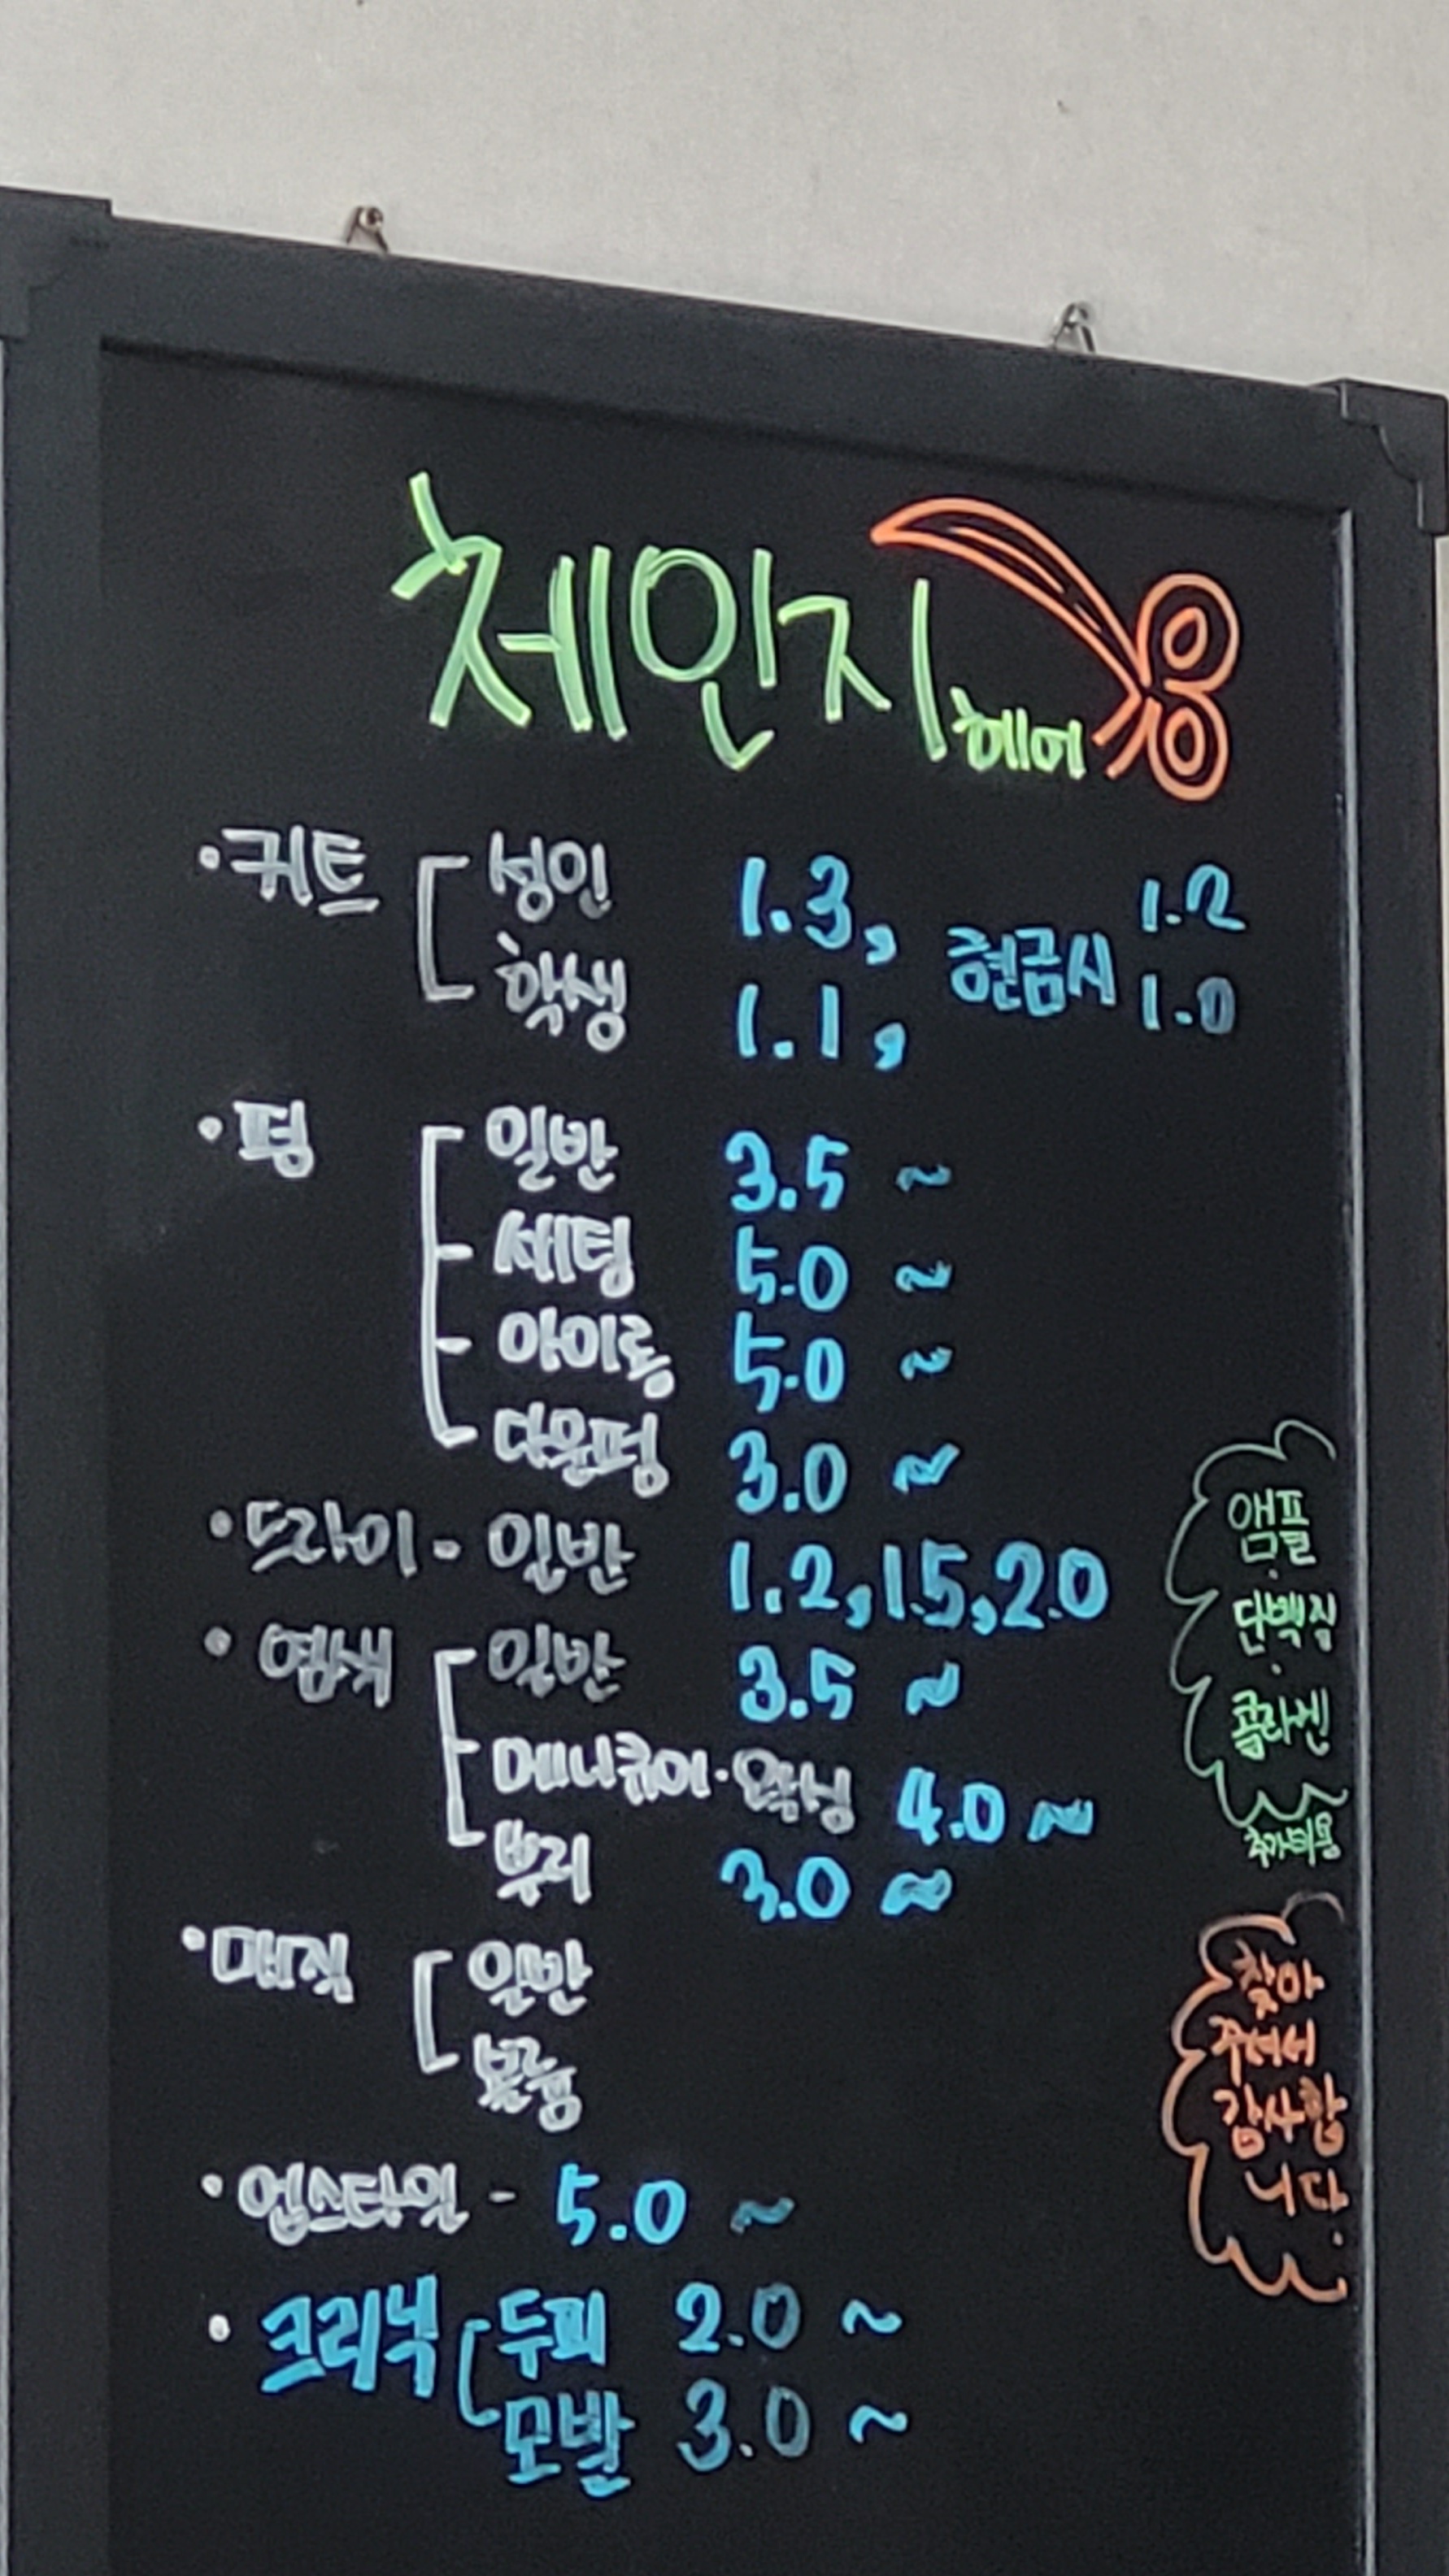 체인지 헤어
·커트 성인 1.3, 현금시 1.2
학생 1.1, 1.0
·펌 일반 3.5 ~
세팅 5.0 ~
아이롱 5.0 ~
다운펌 3.0 ~
·드라이 - 일반 1.2, 1.5, 2.0
·염색 일반 3.5 ~
메니큐어·왁싱 4.0 ~
뿌리 3.0 ~
·매직 일반
볼륨
·업스타일 - 5.0 ~
·크리닉 두피 2.0 ~
모발 3.0 ~
앰플
·
단백질
·
콜라겐
추가비용
찾아
주셔서
감사합
니다.